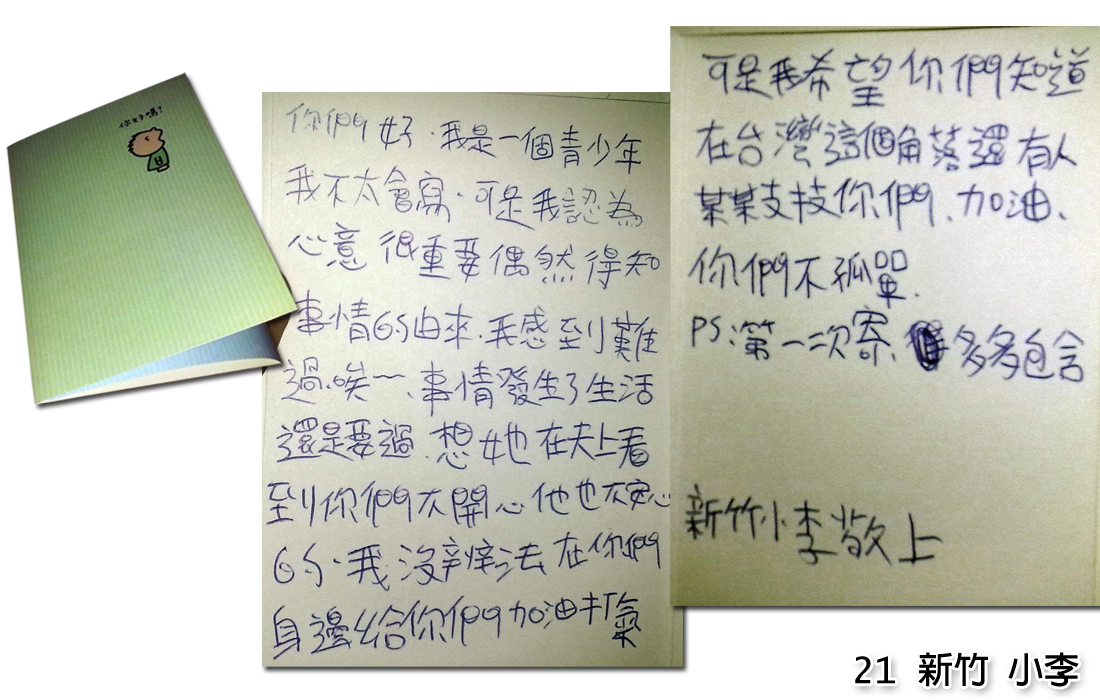 你好嗎?
你們好.我是一個青少年
我不太會寫.可是我認為
心意很重要偶然得知
事情的由來.我感到難
過.唉~、事情發生了生活
還是要過.想她在天上看
到你們不開心他也不安心
的.我沒辦法在你們
身邊給你們加油打氣
可是我希望你們知道
在台灣這個角落還有人
某某支技你們、加油、
你們不孤單.
PS:第一次寄、多多包含
新竹小李敬上
21 新竹 小李